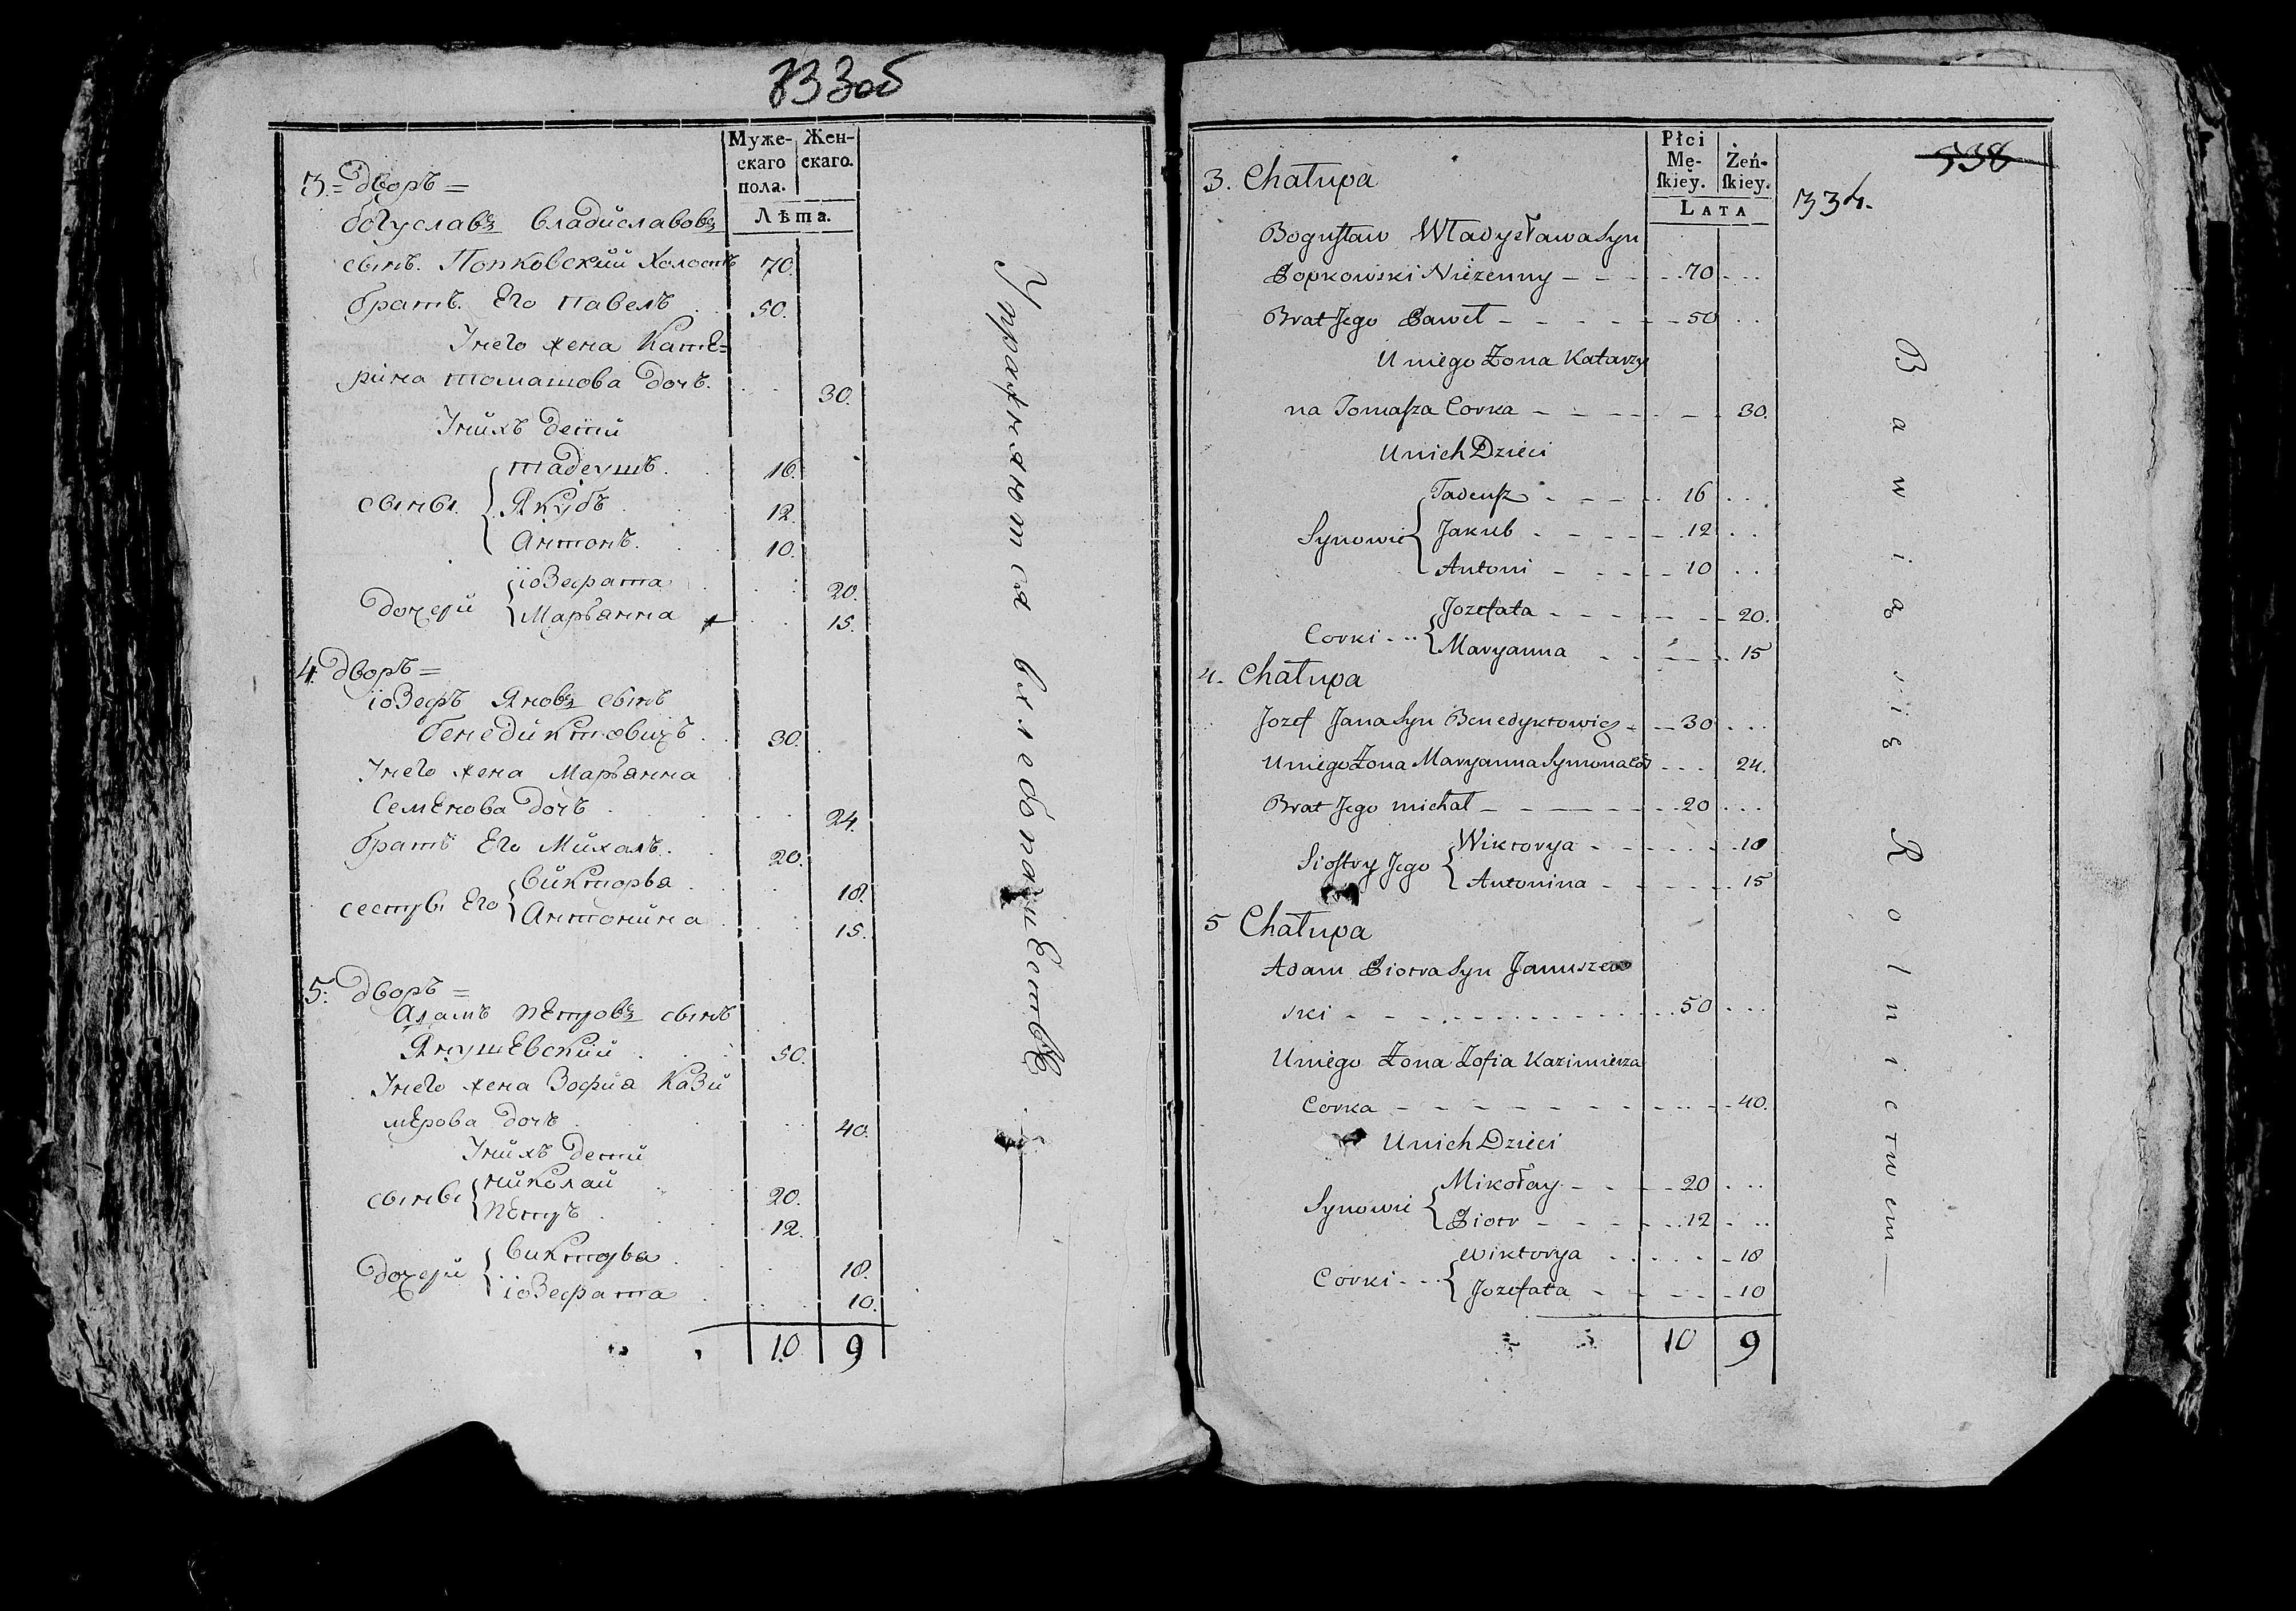 333об
Муже- Жен-
скаго скаго.
пола.
Лѣта.
3. = Дворъ =
Богуславъ Владиславовъ
сынъ Попковский Холостъ 70.
братъ Его Павелъ . . 50.
Унего жена КатЕ=
рина Томашова дочъ. . . 30.
Унихъ дети
сыны { Тадеушъ . . 16.
Якубъ . . 12.
Антонъ . . 10.
дочери { iозефата . . 20.
Марьянна . . 15.
4. Дворъ =
iозефъ Яновъ сынъ
бенедиктовичъ . . 30.
Унего жена Марьянна
СемЕнова дочъ . . 24.
братъ Его Михалъ . . 20.
сестры Его { Викторья . . 18.
Антонина . . 15.
5: Дворъ =
Адамъ ПЕтровъ сынъ
ЯнушЕвский . . 50.
Унего жена Зофия Кази
мЕрова дочъ . . 40.
Унихъ дети
сыны { Николай . . 20.
ПЕтръ . . 12.
дочери { Викторья . . 18.
iозефата . . 10.
10 9
Упражняются вхлебопашЕствЕ
Płci
Mę- Żeń-
ſkiey. ſkiey.
LATA
538
334.
3. Chałupa
Bogusław Władysława Syn
Popkowski Nieżenny - - - 70 . . .
Brat Jego Paweł - - - - - 50 . .
U niego Żona Katarzy
na Tomaſza Corka - - - - - - 30.
U nich Dzieci
Synowie { Tadeuſz - - - - 16 . . .
Jakub - - - - - 12 . .
Antoni - - - - 10 . . .
Corki - .. { Jozefata - - - - - - 20.
Maryanna - - - - . 15
4. Chałupa
Jozef Jana Syn Benedyktowicz - - 30 . . .
U niego Żona Maryanna Symona Cór - . . 24.
Brat Jego michał - - - - - 20 . . .
Sioſtry Jego { Wiktorya - - - - - 18
Antonina - - - - - 15
5 Chałupa
Adam Piotra Syn Januszew
ski - - - - - - - - 50 . . .
U niego Żona Zofia Kazimierza
Corka - - - - - - - - - 40.
U nich Dzieci
Synowie { Mikołay - - - - 20 . . .
Piotr - - - - - 12 . . .
Corki - - . { Wiktorya . . - - - 18
Jozefata - - - - - 10
10 9
Bawią się Rolnictwem